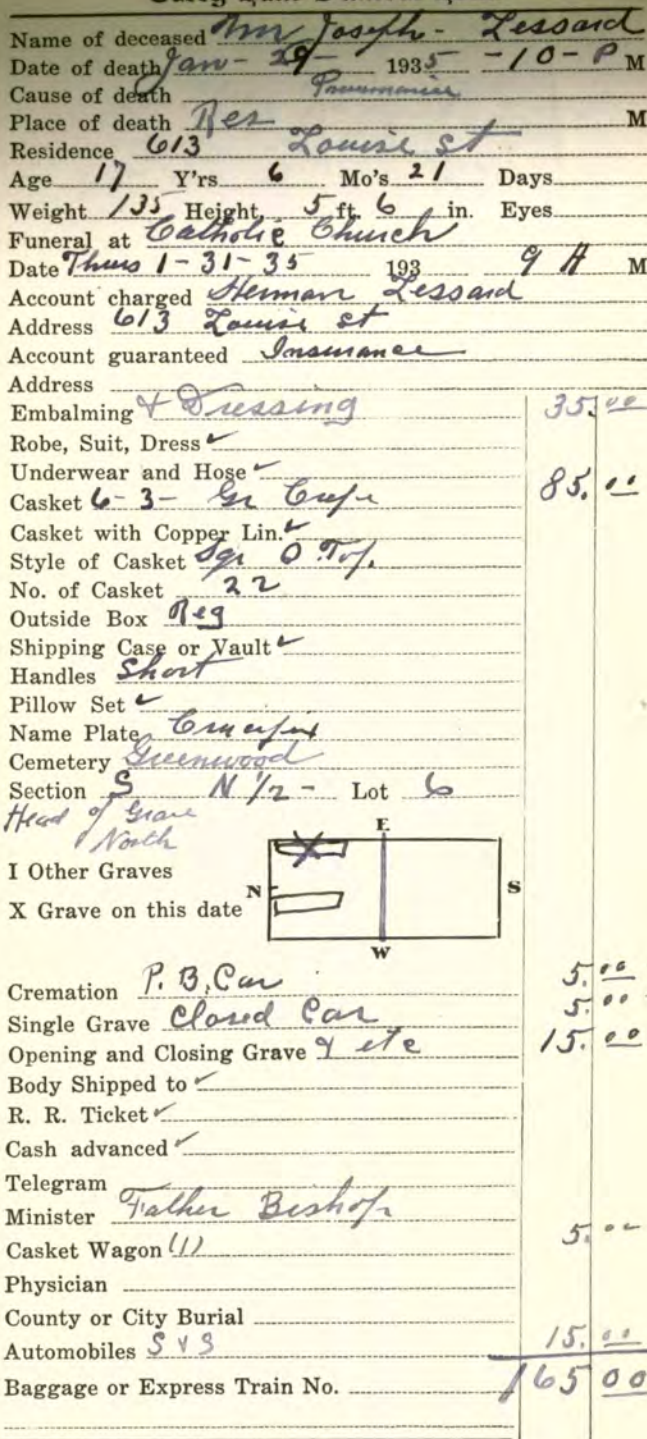 Name of deceased Wm Joseph - Lessard
Date of death Jan - 29 - 1935 - 10 - P M
Cause of death Pneumonia
Place of death Res M
Residence 613 Louise St
Age 17 Y'rs 6 Mo's 21 Days
Weight 135 Height, 5 ft. 6 in. Eyes
Funeral at Catholic Church
Date Thurs 1-31-35 193 9 A M
Account charged Herman Lessard
Address 613 Louise St
Account guaranteed Insurance
Address
Embalming & Dressing 35.00
Robe, Suit, Dress ✓
Underwear and Hose ✓
Casket 6-3- Gr Crepe 85.00
Casket with Copper Lin. ✓
Style of Casket Sqr O Top.
No. of Casket 22
Outside Box Reg
Shipping Case or Vault ✓
Handles Short
Pillow Set ✓
Name Plate Crucifix
Cemetery Greenwood
Section S N 1/2 - Lot 6
Head of Grave
North
I Other Graves
X Grave on this date
E
N S
W
Cremation P. B. Car 5.00
Single Grave Closed Car 5.00
Opening and Closing Grave & etc 15.00
Body Shipped to ✓
R. R. Ticket ✓
Cash advanced ✓
Telegram
Minister Father Bishop
Casket Wagon (1) 5.00
Physician
County or City Burial
Automobiles S & S 15.00
Baggage or Express Train No. 165 00